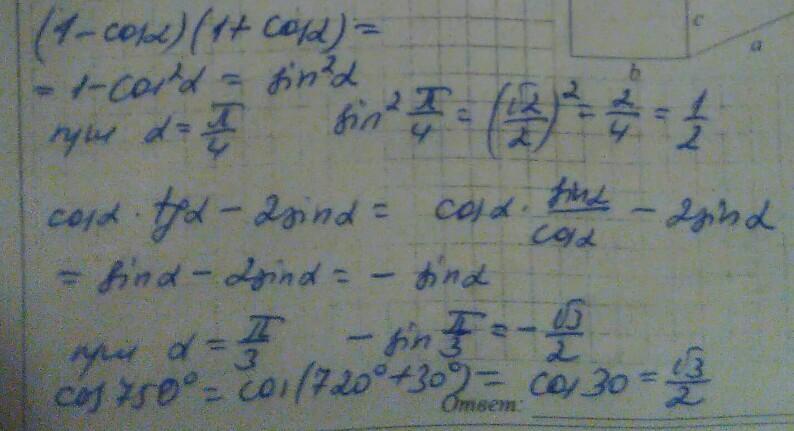 (1-cosα)(1+cosα)=
= 1-cos²α = sin²α
при α=π/4 sin² π/4 = (√2/2)² = 2/4 = 1/2
cosα · tgα - 2sinα = cosα · sinα/cosα - 2sinα
= sinα - 2sinα = - sinα
при α = π/3 - sin π/3 = - √3/2
cos 750° = cos(720°+30°) = cos 30 = √3/2
Ответ:
c
a
b